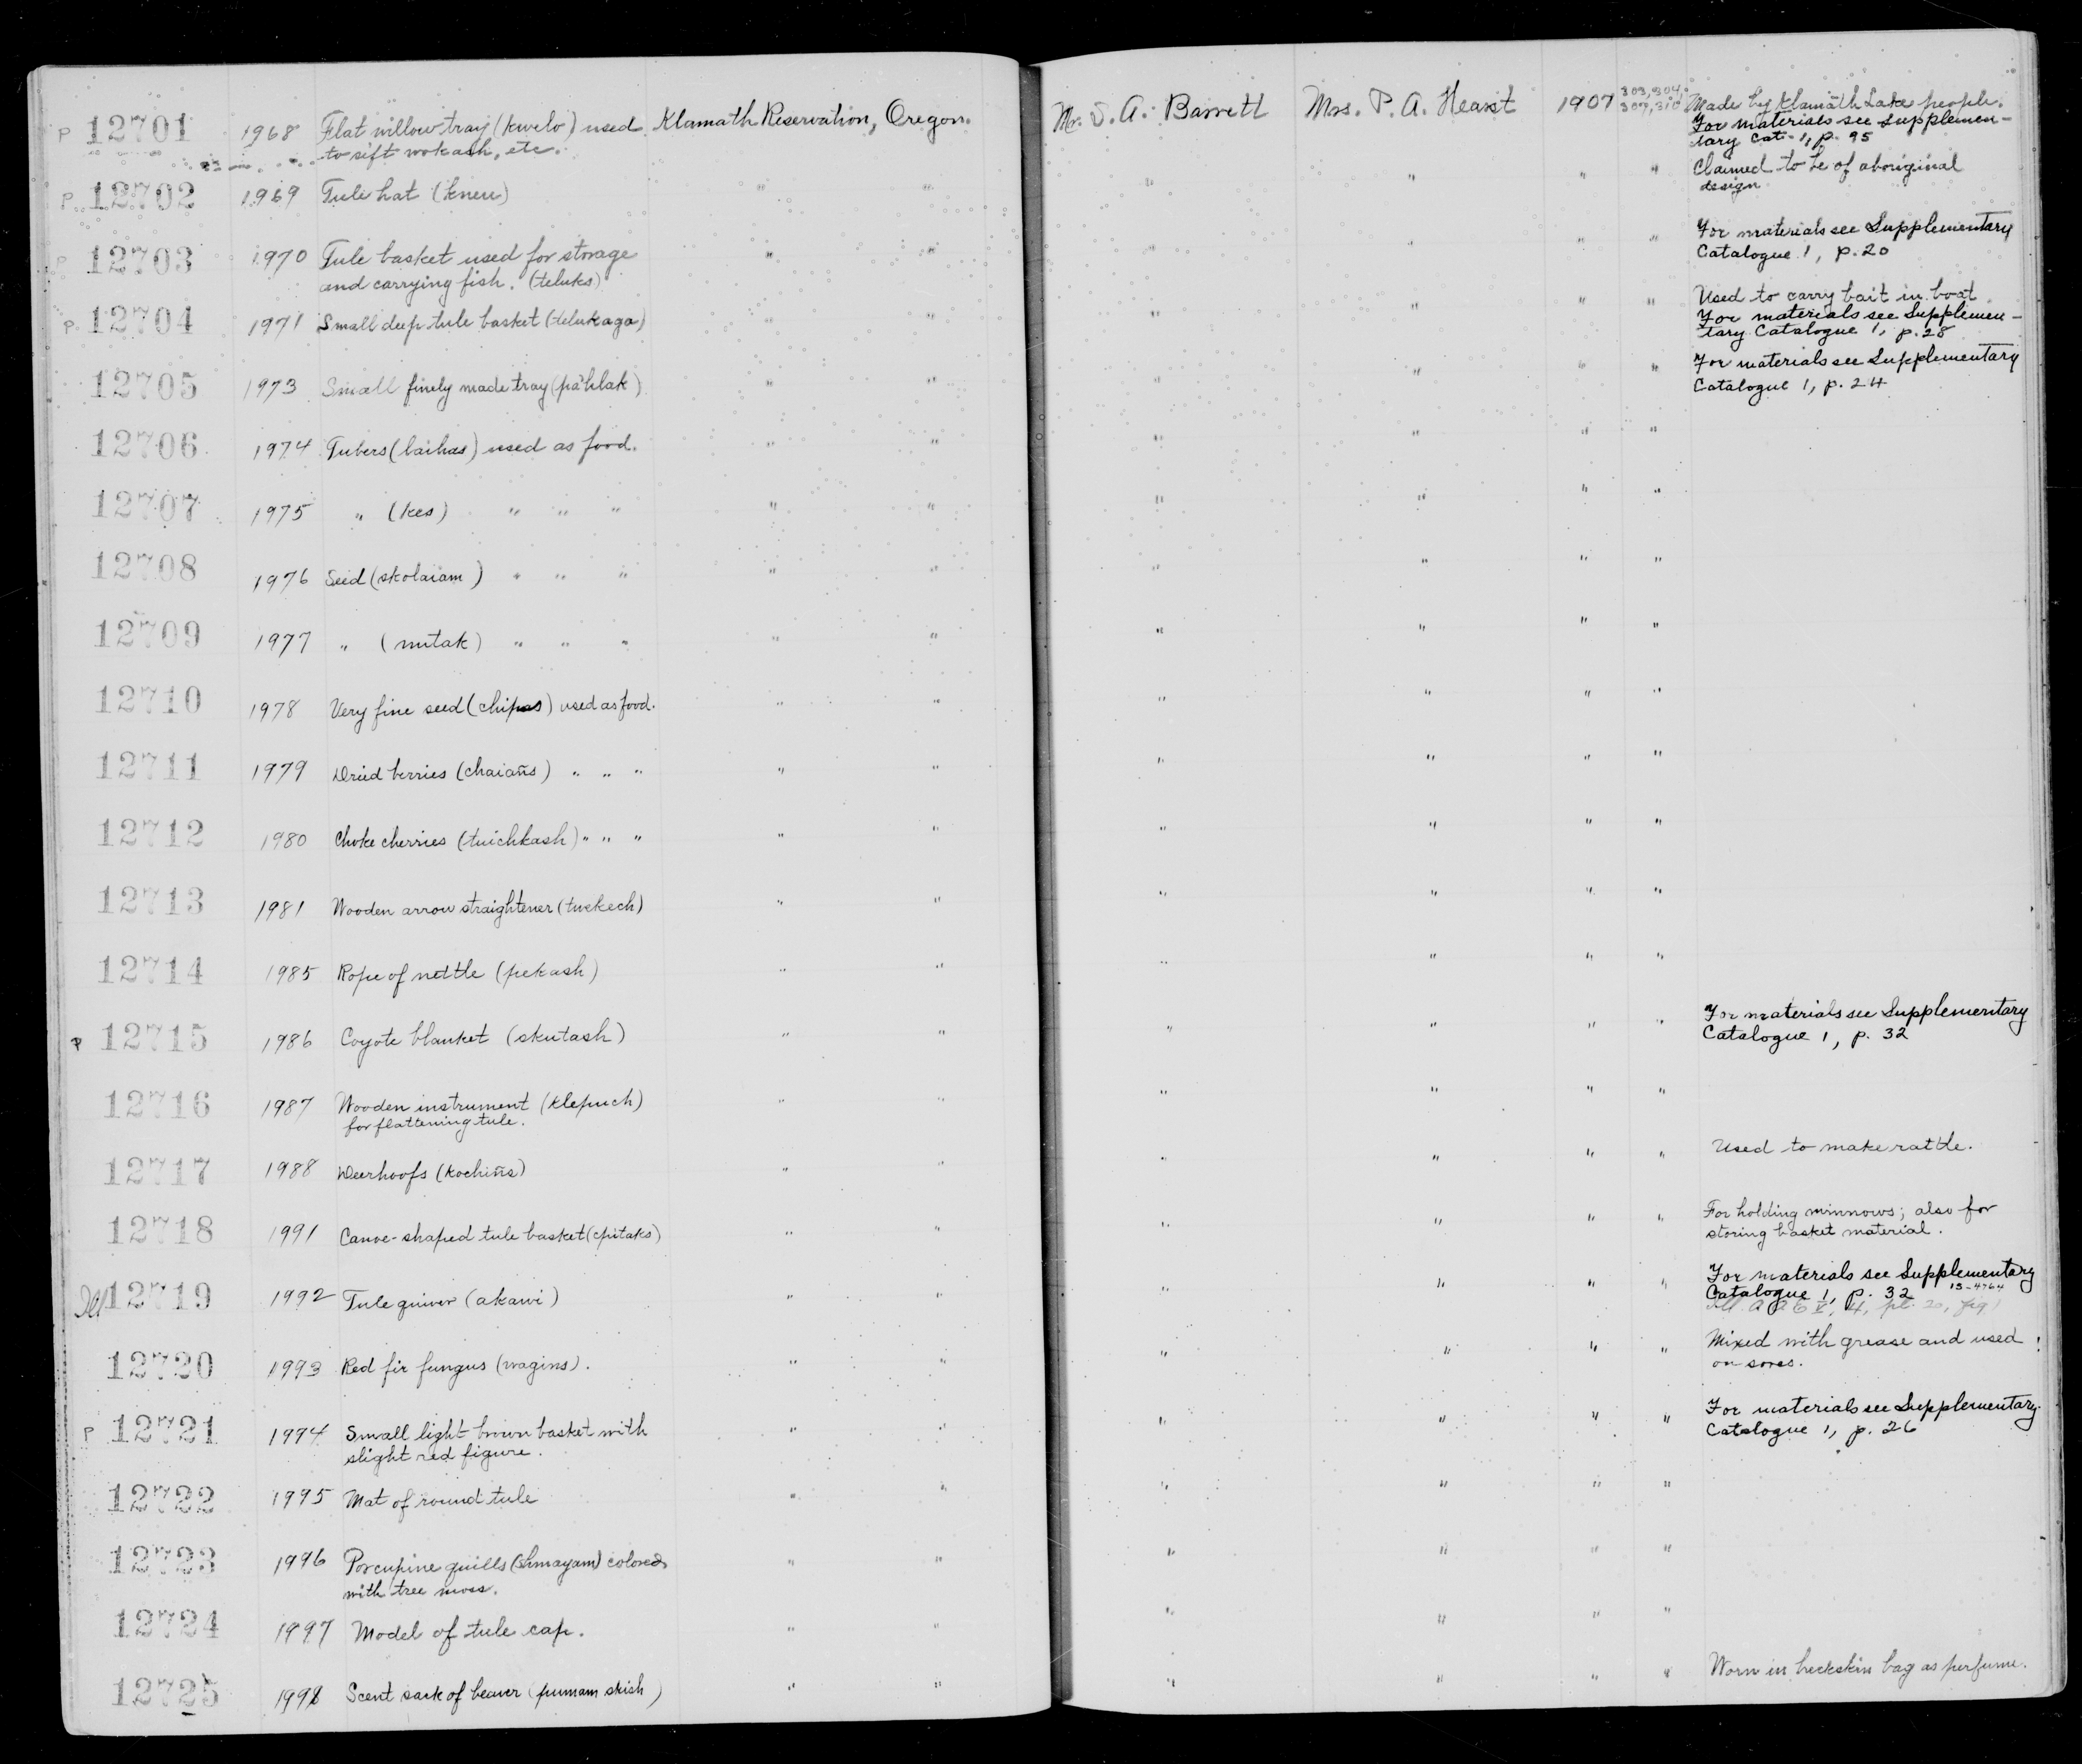 P 12701 1968 Flat willow tray (kwelo) used Klamath Reservation, Oregon. Mr. S. A. Barrett Mrs. P. A. Hearst 1907 303, 304, Made by Klamath Lake people.
to sift wokash, etc. 307, 310 For materials see Supplemen-
tary Cat. 1, p. 95
P 12702 1969 Tule hat (kneu) " " " " " " Claimed to be of aboriginal
design
P 12703 1970 Tule basket used for storage " " " " " " For materials see Supplementary
and carrying fish. (teluks) Catalogue 1, p. 20
P 12704 1971 Small deep tule basket (telukaga) " " " " " " Used to carry bait in boat.
For materials see Supplemen-
tary Catalogue 1, p. 28
12705 1973 Small finely made tray (pa'hlak) " " " " " " For materials see Supplementary
Catalogue 1, p. 24
12706 1974 Tubers (laihas) used as food. " " " " " "
12707 1975 " (kes) " " " " " " " " "
12708 1976 Seed (skolaiam) " " " " " " " " "
12709 1977 " (nutak) " " " " " " " " "
12710 1978 Very fine seed (chipas) used as food. " " " " " "
12711 1979 Dried berries (chaiañs) " " " " " " " " "
12712 1980 Choke cherries (tuichkash) " " " " " " " " "
12713 1981 Wooden arrow straightener (tuekech) " " " " " "
12714 1985 Rope of nettle (pekash) " " " " " "
P 12715 1986 Coyote blanket (skutash) " " " " " " For materials see Supplementary
Catalogue 1, p. 32
12716 1987 Wooden instrument (klepuch) " " " " " "
for flattening tule.
12717 1988 Deerhoofs (kochiñs) " " " " " " Used to make rattle.
12718 1991 Canoe-shaped tule basket (cpitaks) " " " " " " For holding minnows; also for
storing basket material.
Ill 12719 1992 Tule quiver (akawi) " " " " " " For materials see Supplementary
Catalogue 1, p. 32 15-4764
Ill. A A E V, 4, pl. 20, fig 1
12720 1993 Red fir fungus (wagins). " " " " " " Mixed with grease and used
on sores.
P 12721 1994 Small light brown basket with " " " " " " For materials see Supplementary
slight red figure. Catalogue 1, p. 26
12722 1995 Mat of round tule " " " " " "
12723 1996 Porcupine quills (shmayam) colored " " " " " "
with tree moss.
12724 1997 Model of tule cap. " " " " " "
12725 1998 Scent sack of beaver (pumam skish) " " " " " " Worn in buckskin bag as perfume.